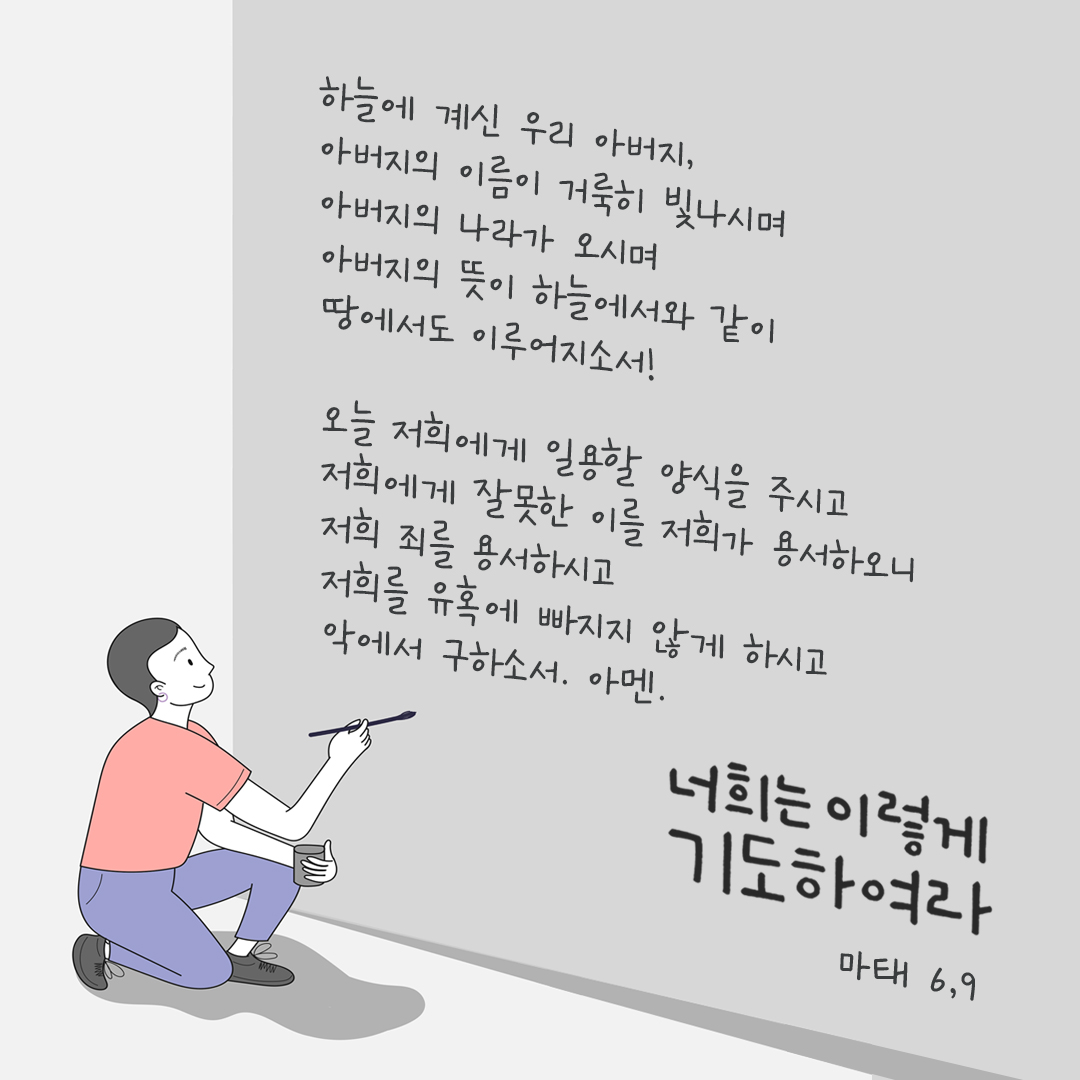 하늘에 계신 우리 아버지,
아버지의 이름이 거룩히 빛나시며
아버지의 나라가 오시며
아버지의 뜻이 하늘에서와 같이
땅에서도 이루어지소서!
오늘 저희에게 일용할 양식을 주시고
저희에게 잘못한 이를 저희가 용서하오니
저희 죄를 용서하시고
저희를 유혹에 빠지지 않게 하시고
악에서 구하소서. 아멘.
너희는 이렇게
기도하여라
마태 6,9